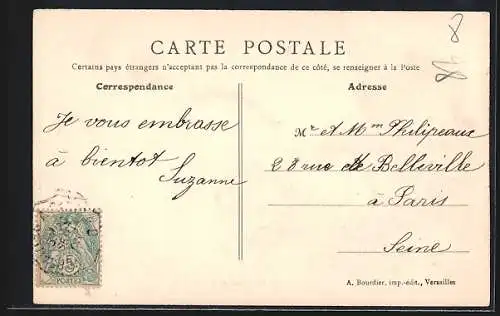 CARTE POSTALE
Certains pays étrangers n'acceptant pas la correspondance de ce côté, se renseigner à la Poste
Correspondance
Adresse
Je vous embrasse
à bientot
Suzanne
Mr et Mme Philipeaux
28 rue de Belleville
à Paris
Seine
A. Bourdier, imp.-édit., Versailles
5
POSTES